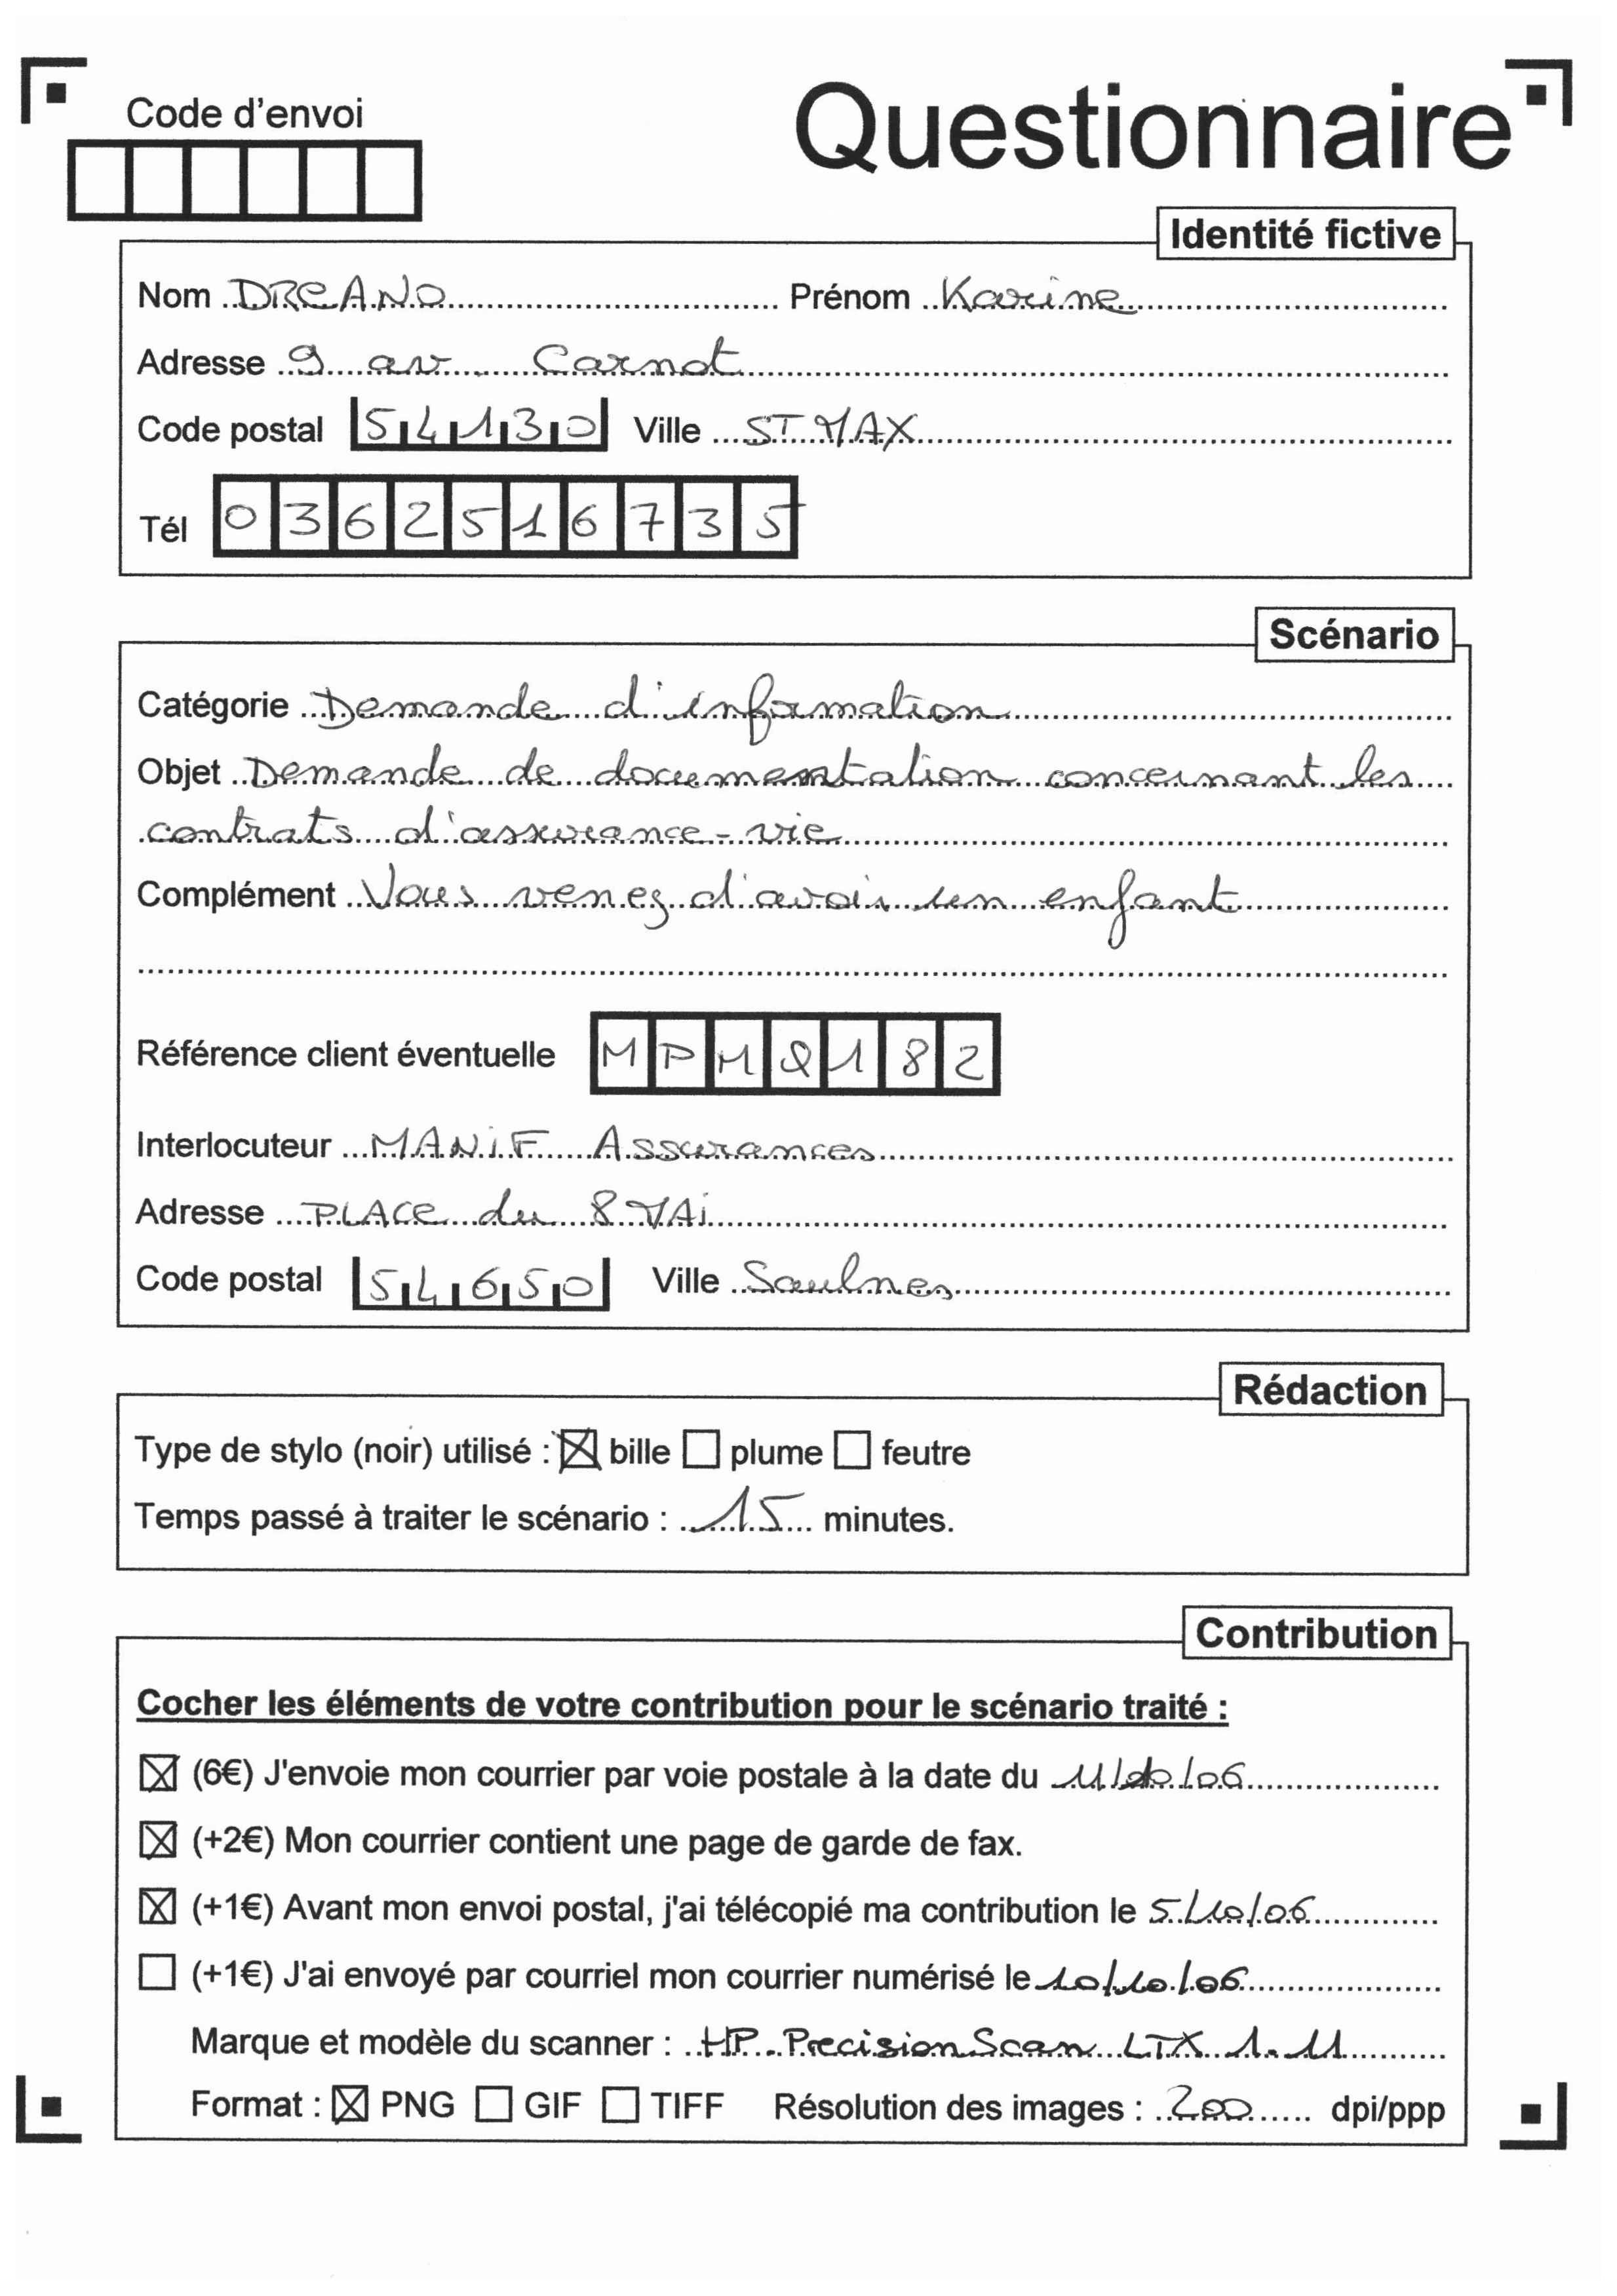 Code d'envoi
Questionnaire
Identité fictive
Nom DREANO Prénom Karine
Adresse 9 av. Carnot
Code postal 54130 Ville ST MAX
Tél 0362516735
Scénario
Catégorie Demande d'information
Objet Demande de documentation concernant les
contrats d'assurance-vie
Complément Vous venez d'avoir un enfant
Référence client éventuelle MPMQ182
Interlocuteur MANIF Assurances
Adresse PLACE du 8 MAi
Code postal 54650 Ville Saulnes
Rédaction
Type de stylo (noir) utilisé : ☒ bille ☐ plume ☐ feutre
Temps passé à traiter le scénario : 15 minutes.
Contribution
Cocher les éléments de votre contribution pour le scénario traité :
☒ (6€) J'envoie mon courrier par voie postale à la date du 11/10/06
☒ (+2€) Mon courrier contient une page de garde de fax.
☒ (+1€) Avant mon envoi postal, j'ai télécopié ma contribution le 5/10/06
☐ (+1€) J'ai envoyé par courriel mon courrier numérisé le 10/10/06
Marque et modèle du scanner : HP PrecisionScan LTX 1.11
Format : ☒ PNG ☐ GIF ☐ TIFF Résolution des images : 200 dpi/ppp